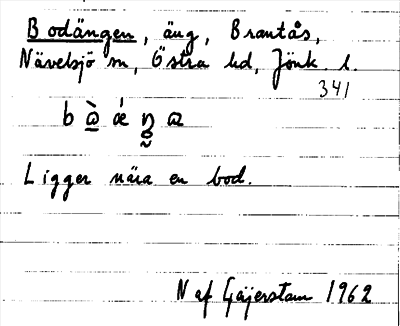 Bodängen, äng, Brantås,
Nävelsjö sn, Östra hd, Jönk. l.
341
Ligger nära en bod.
N af Gäjerstam 1962